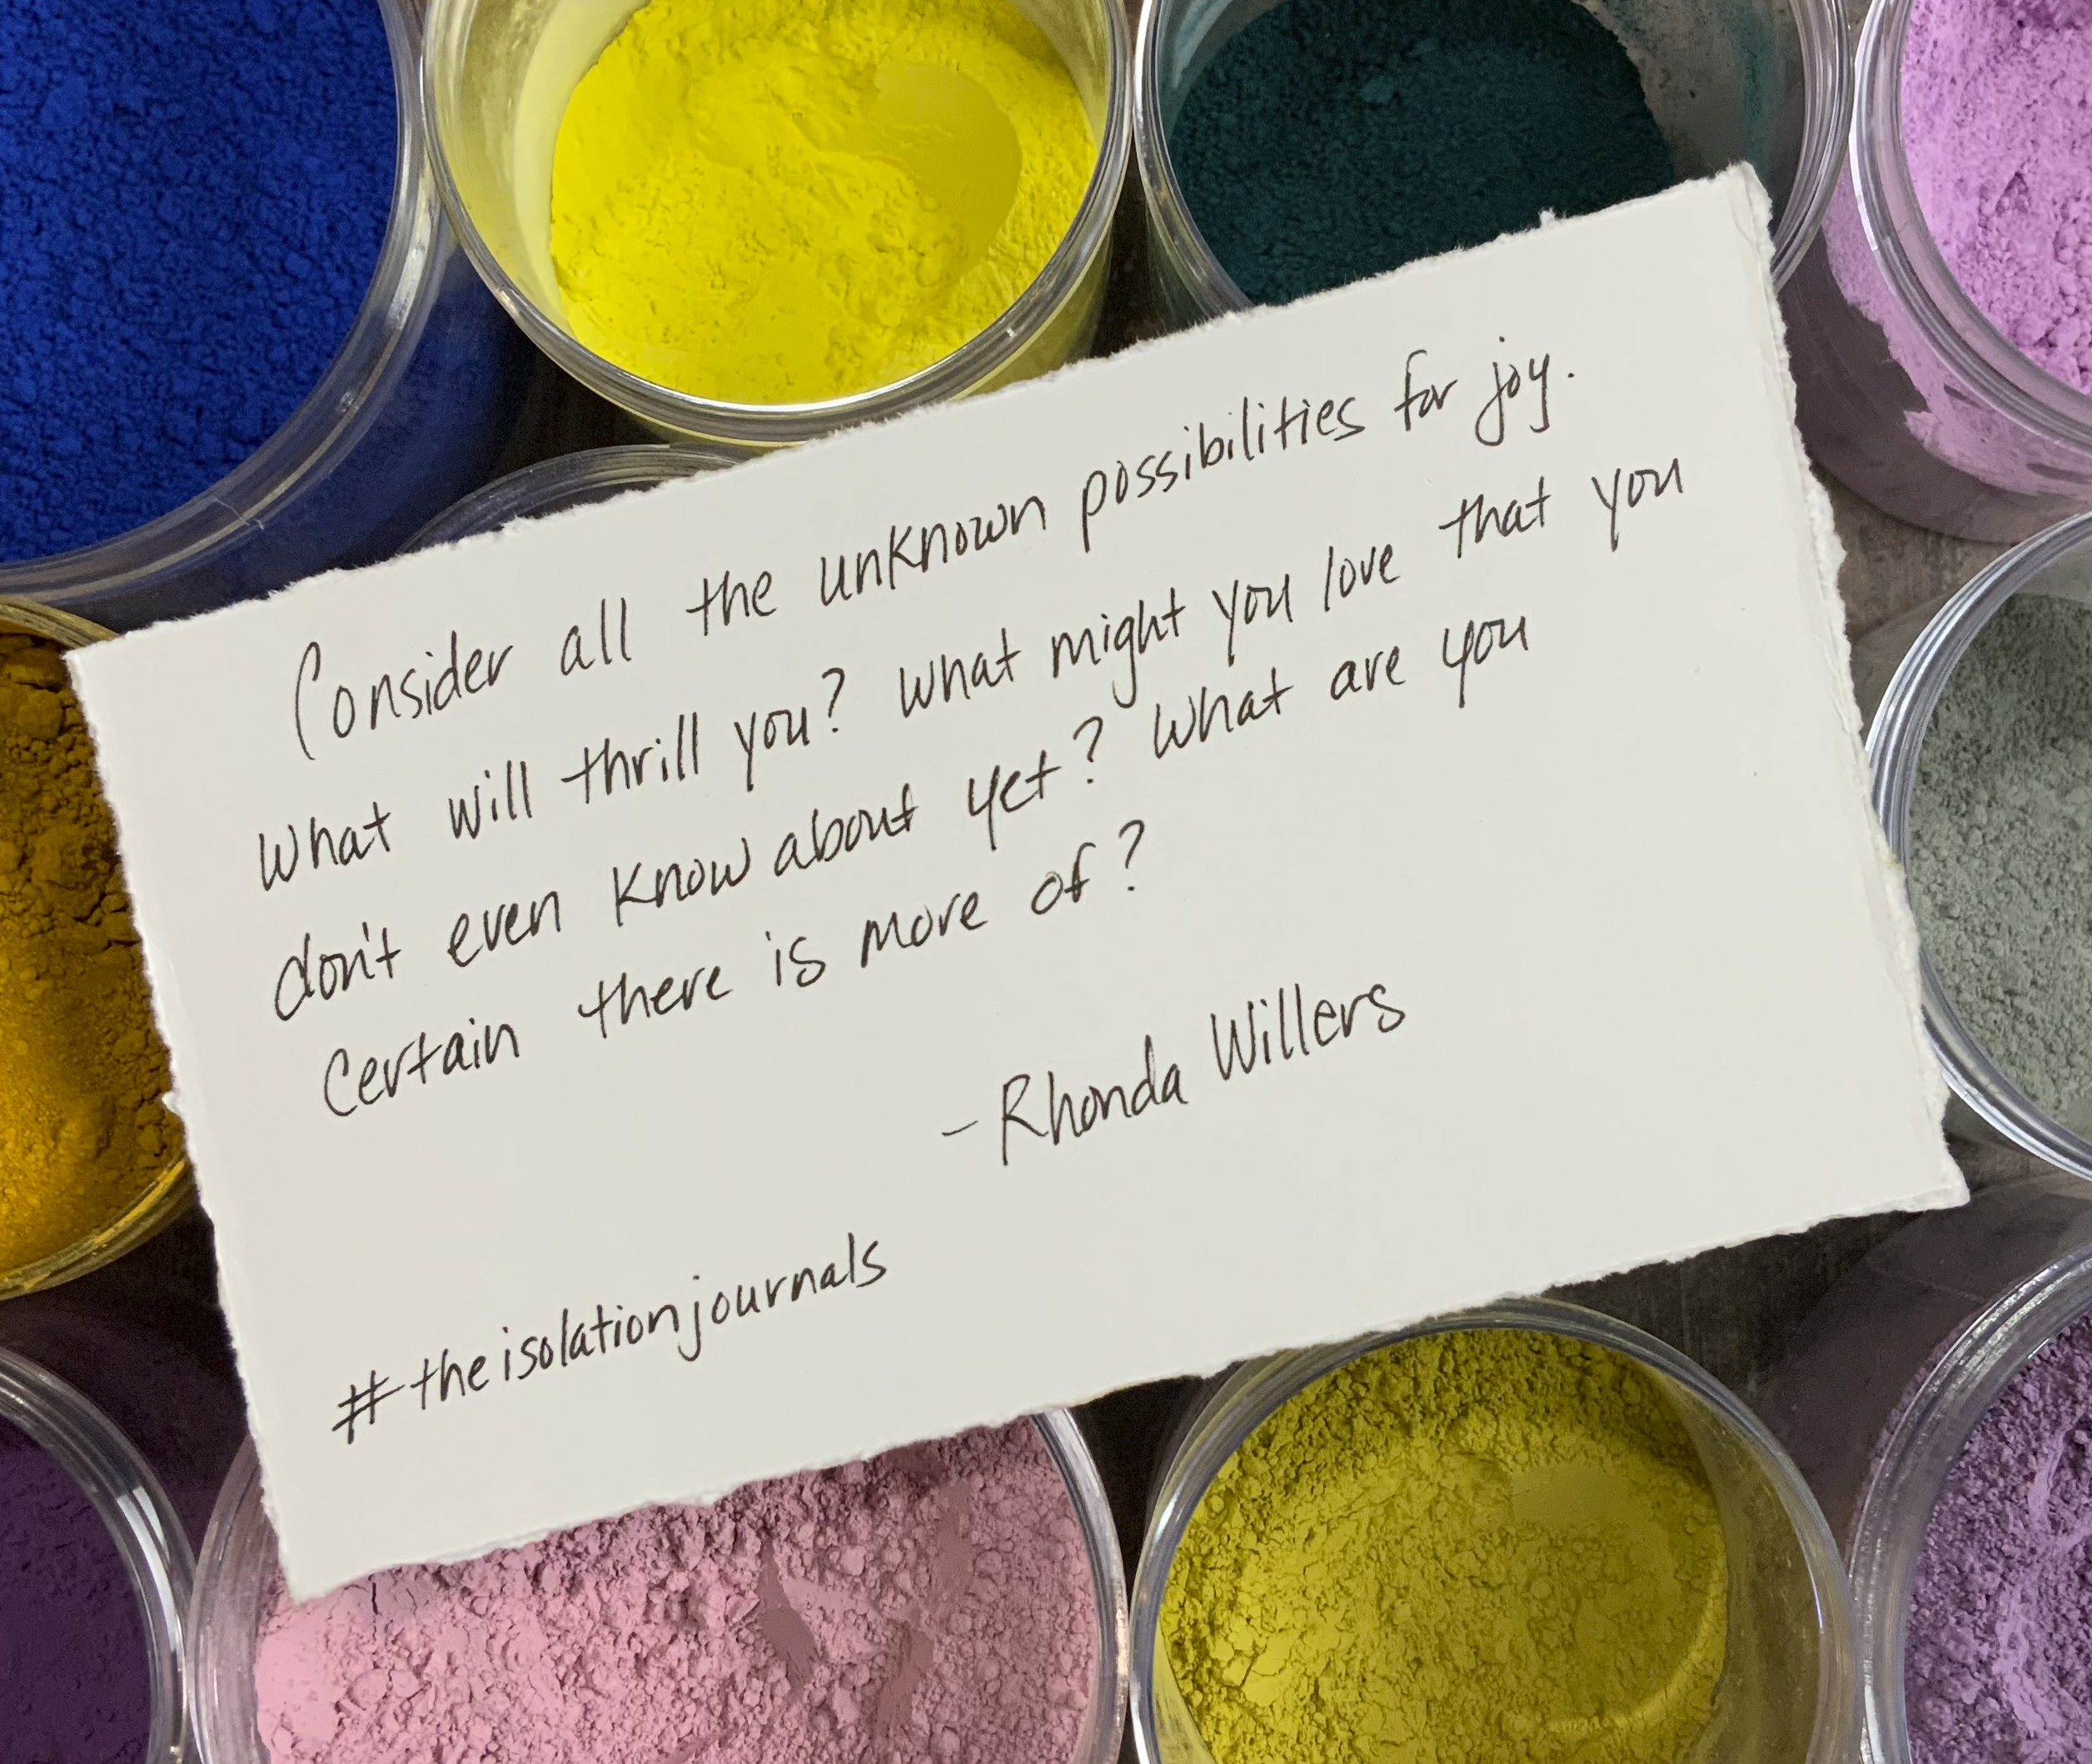 Consider all the unknown possibilities for joy.
What will thrill you? What might you love that you
don't even know about yet? What are you
Certain there is more of?
- Rhonda Willers
#theisolationjournals